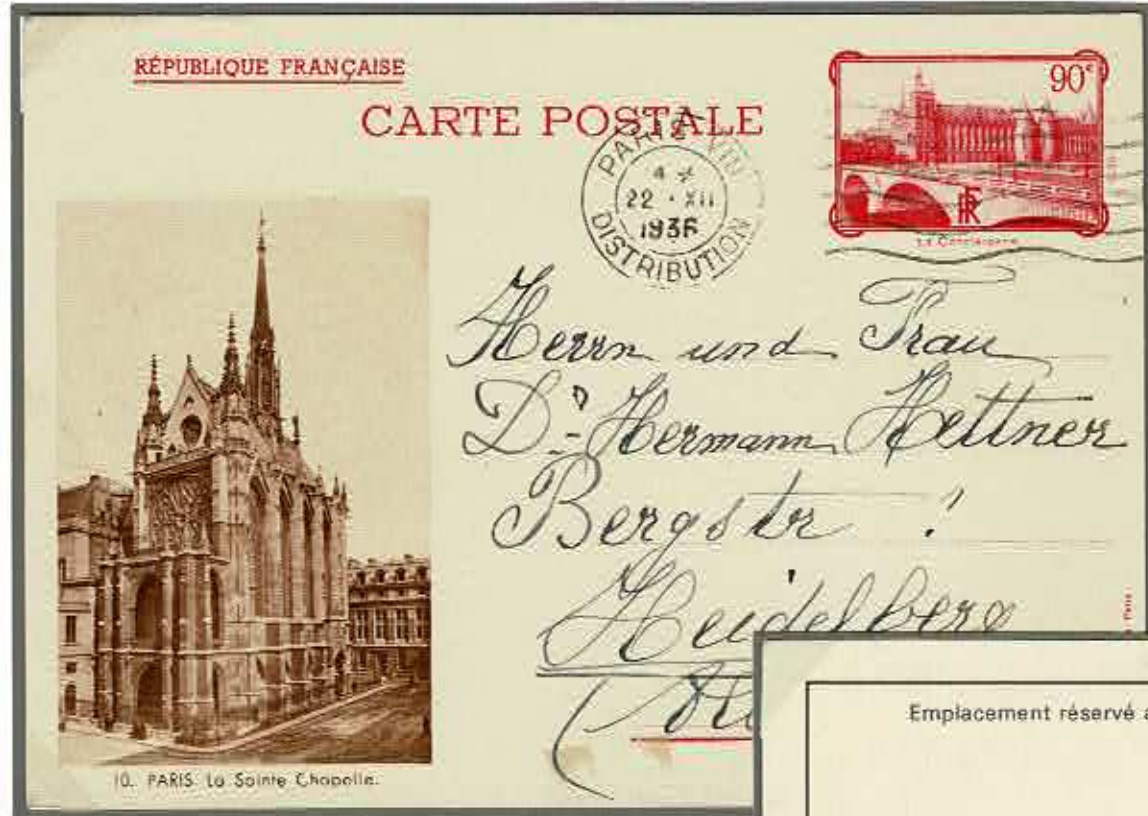 RÉPUBLIQUE FRANÇAISE
CARTE POSTALE
90c
RF
La Conciergerie
PARIS VIN
4 *
22 · XII
1936
DISTRIBUTION
Herrn und Frau
Dr Hermann Hettner
Bergstr !
Heidelberg
10. PARIS. La Sainte Chapelle.
Emplacement réservé a